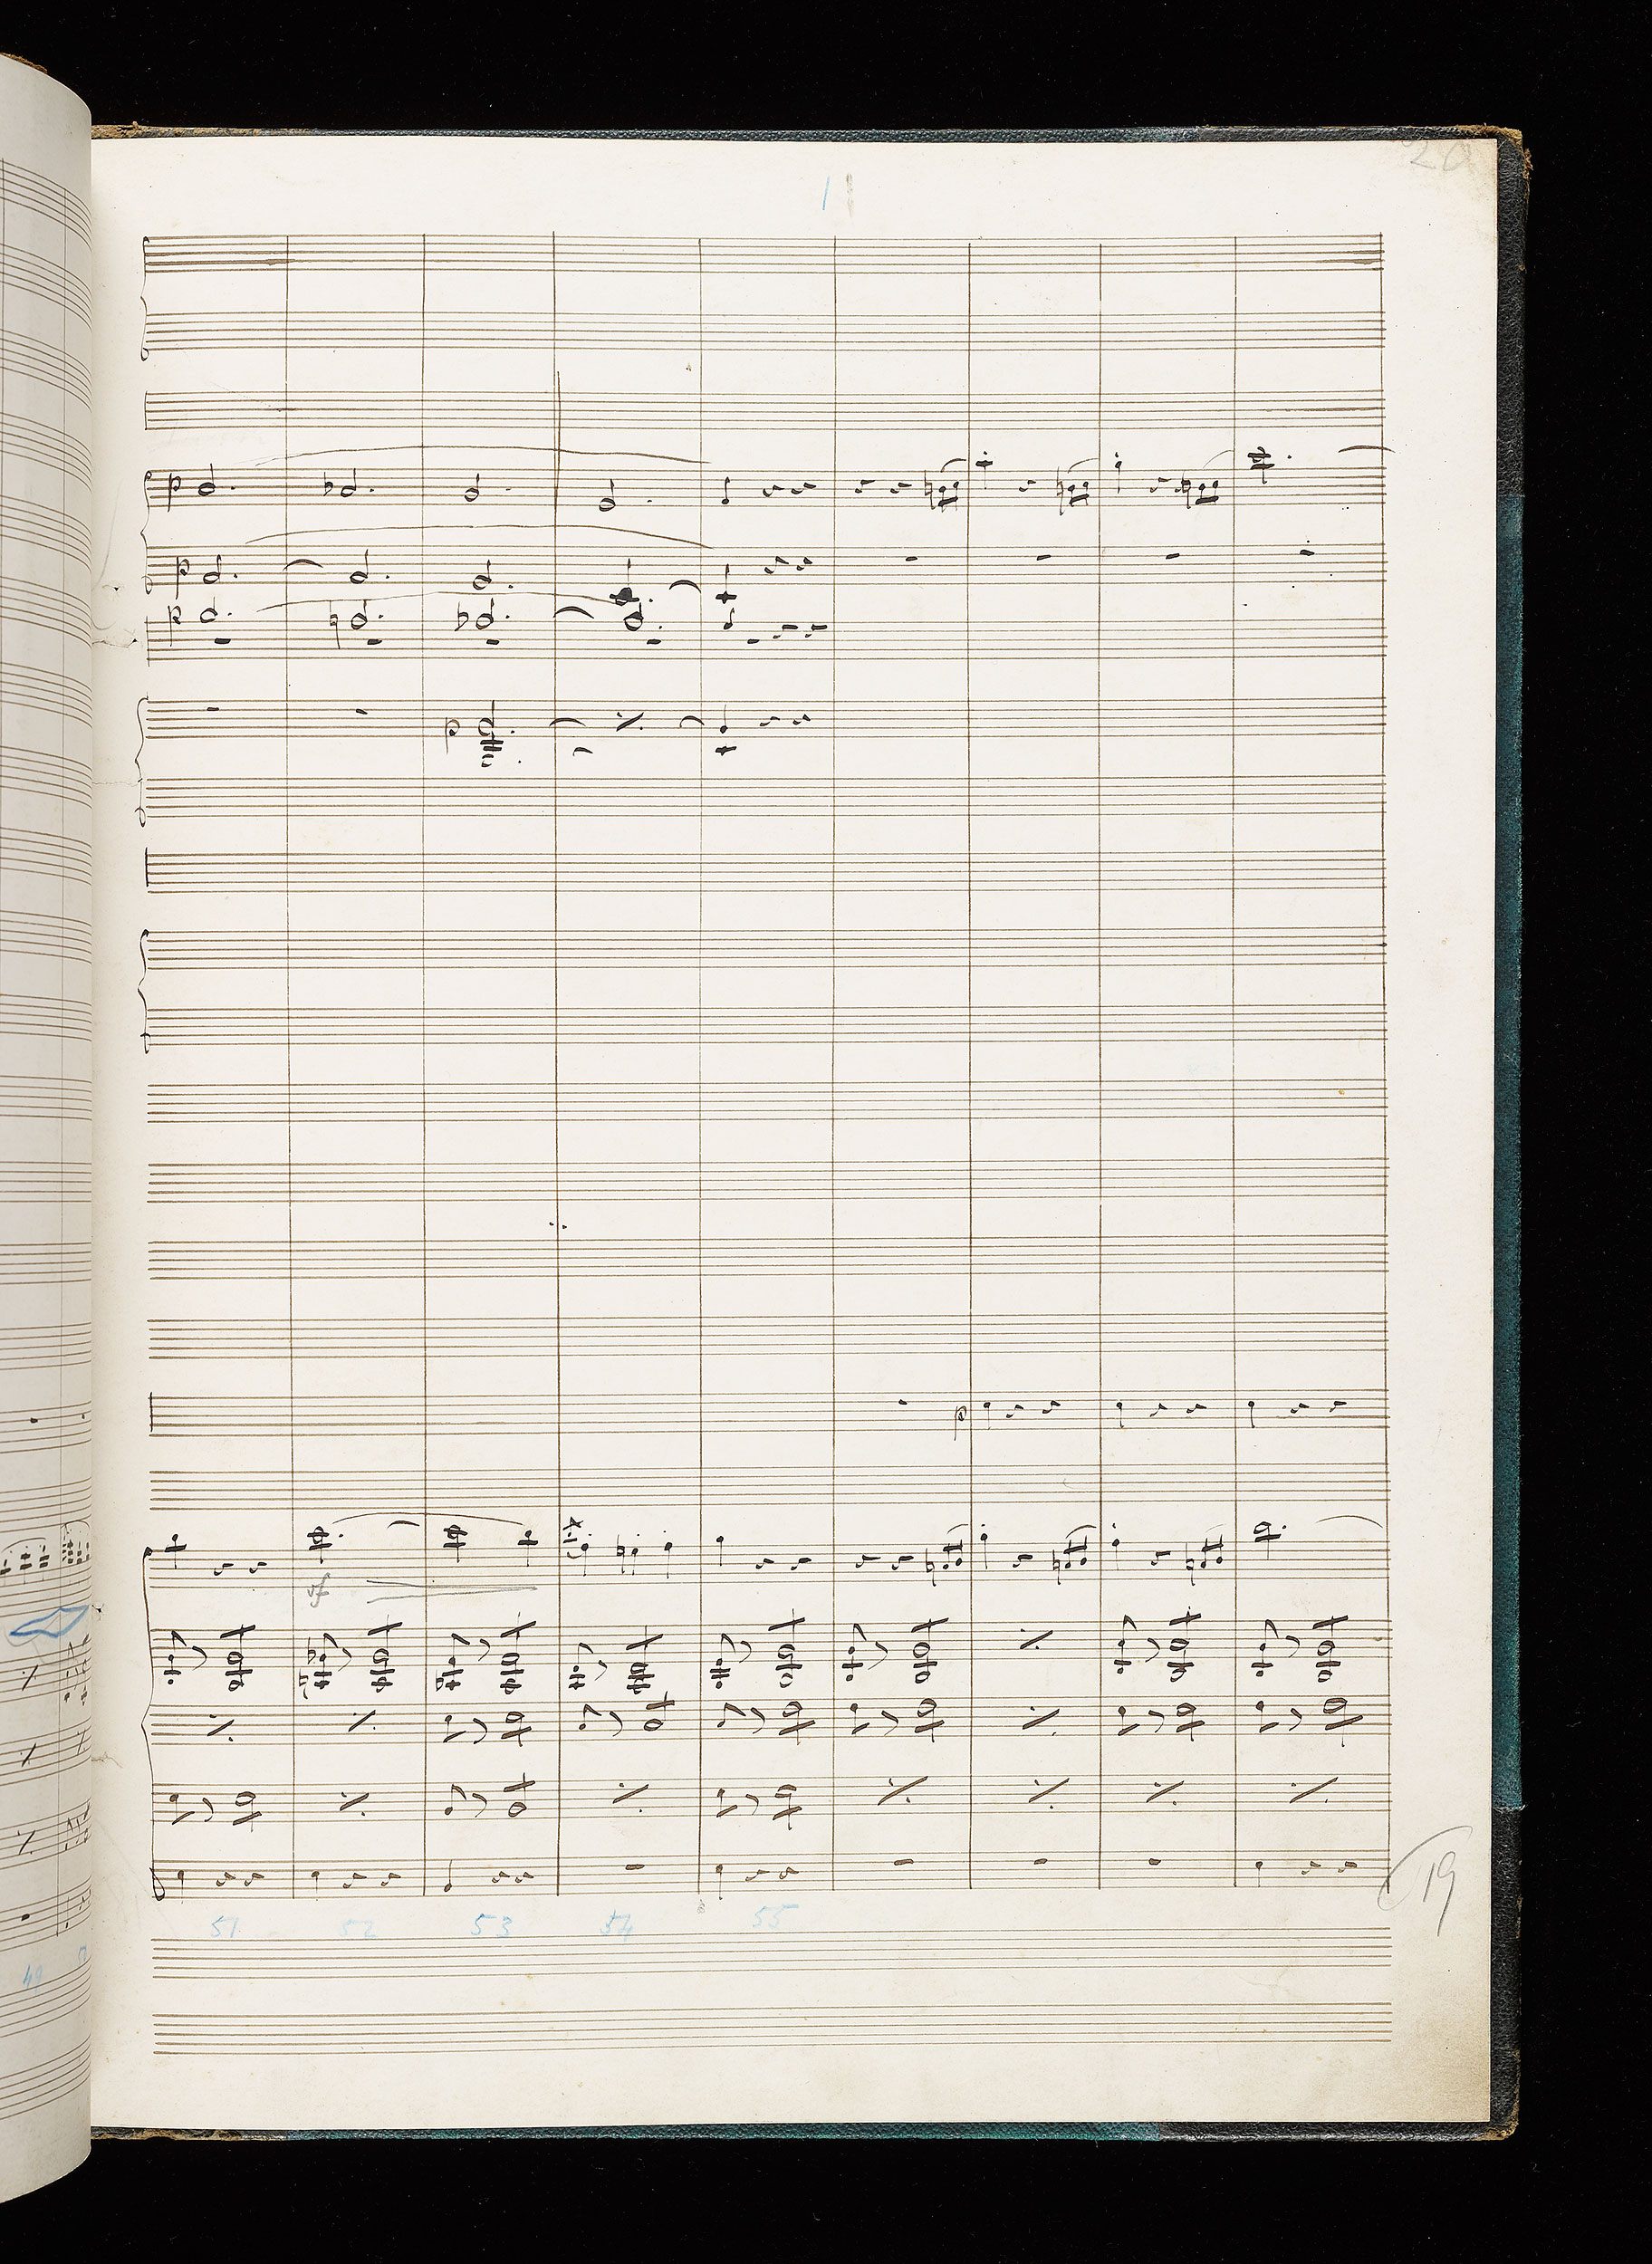 20
1
p
p
p
p
p
sf
19
51 52 53 54 55
49